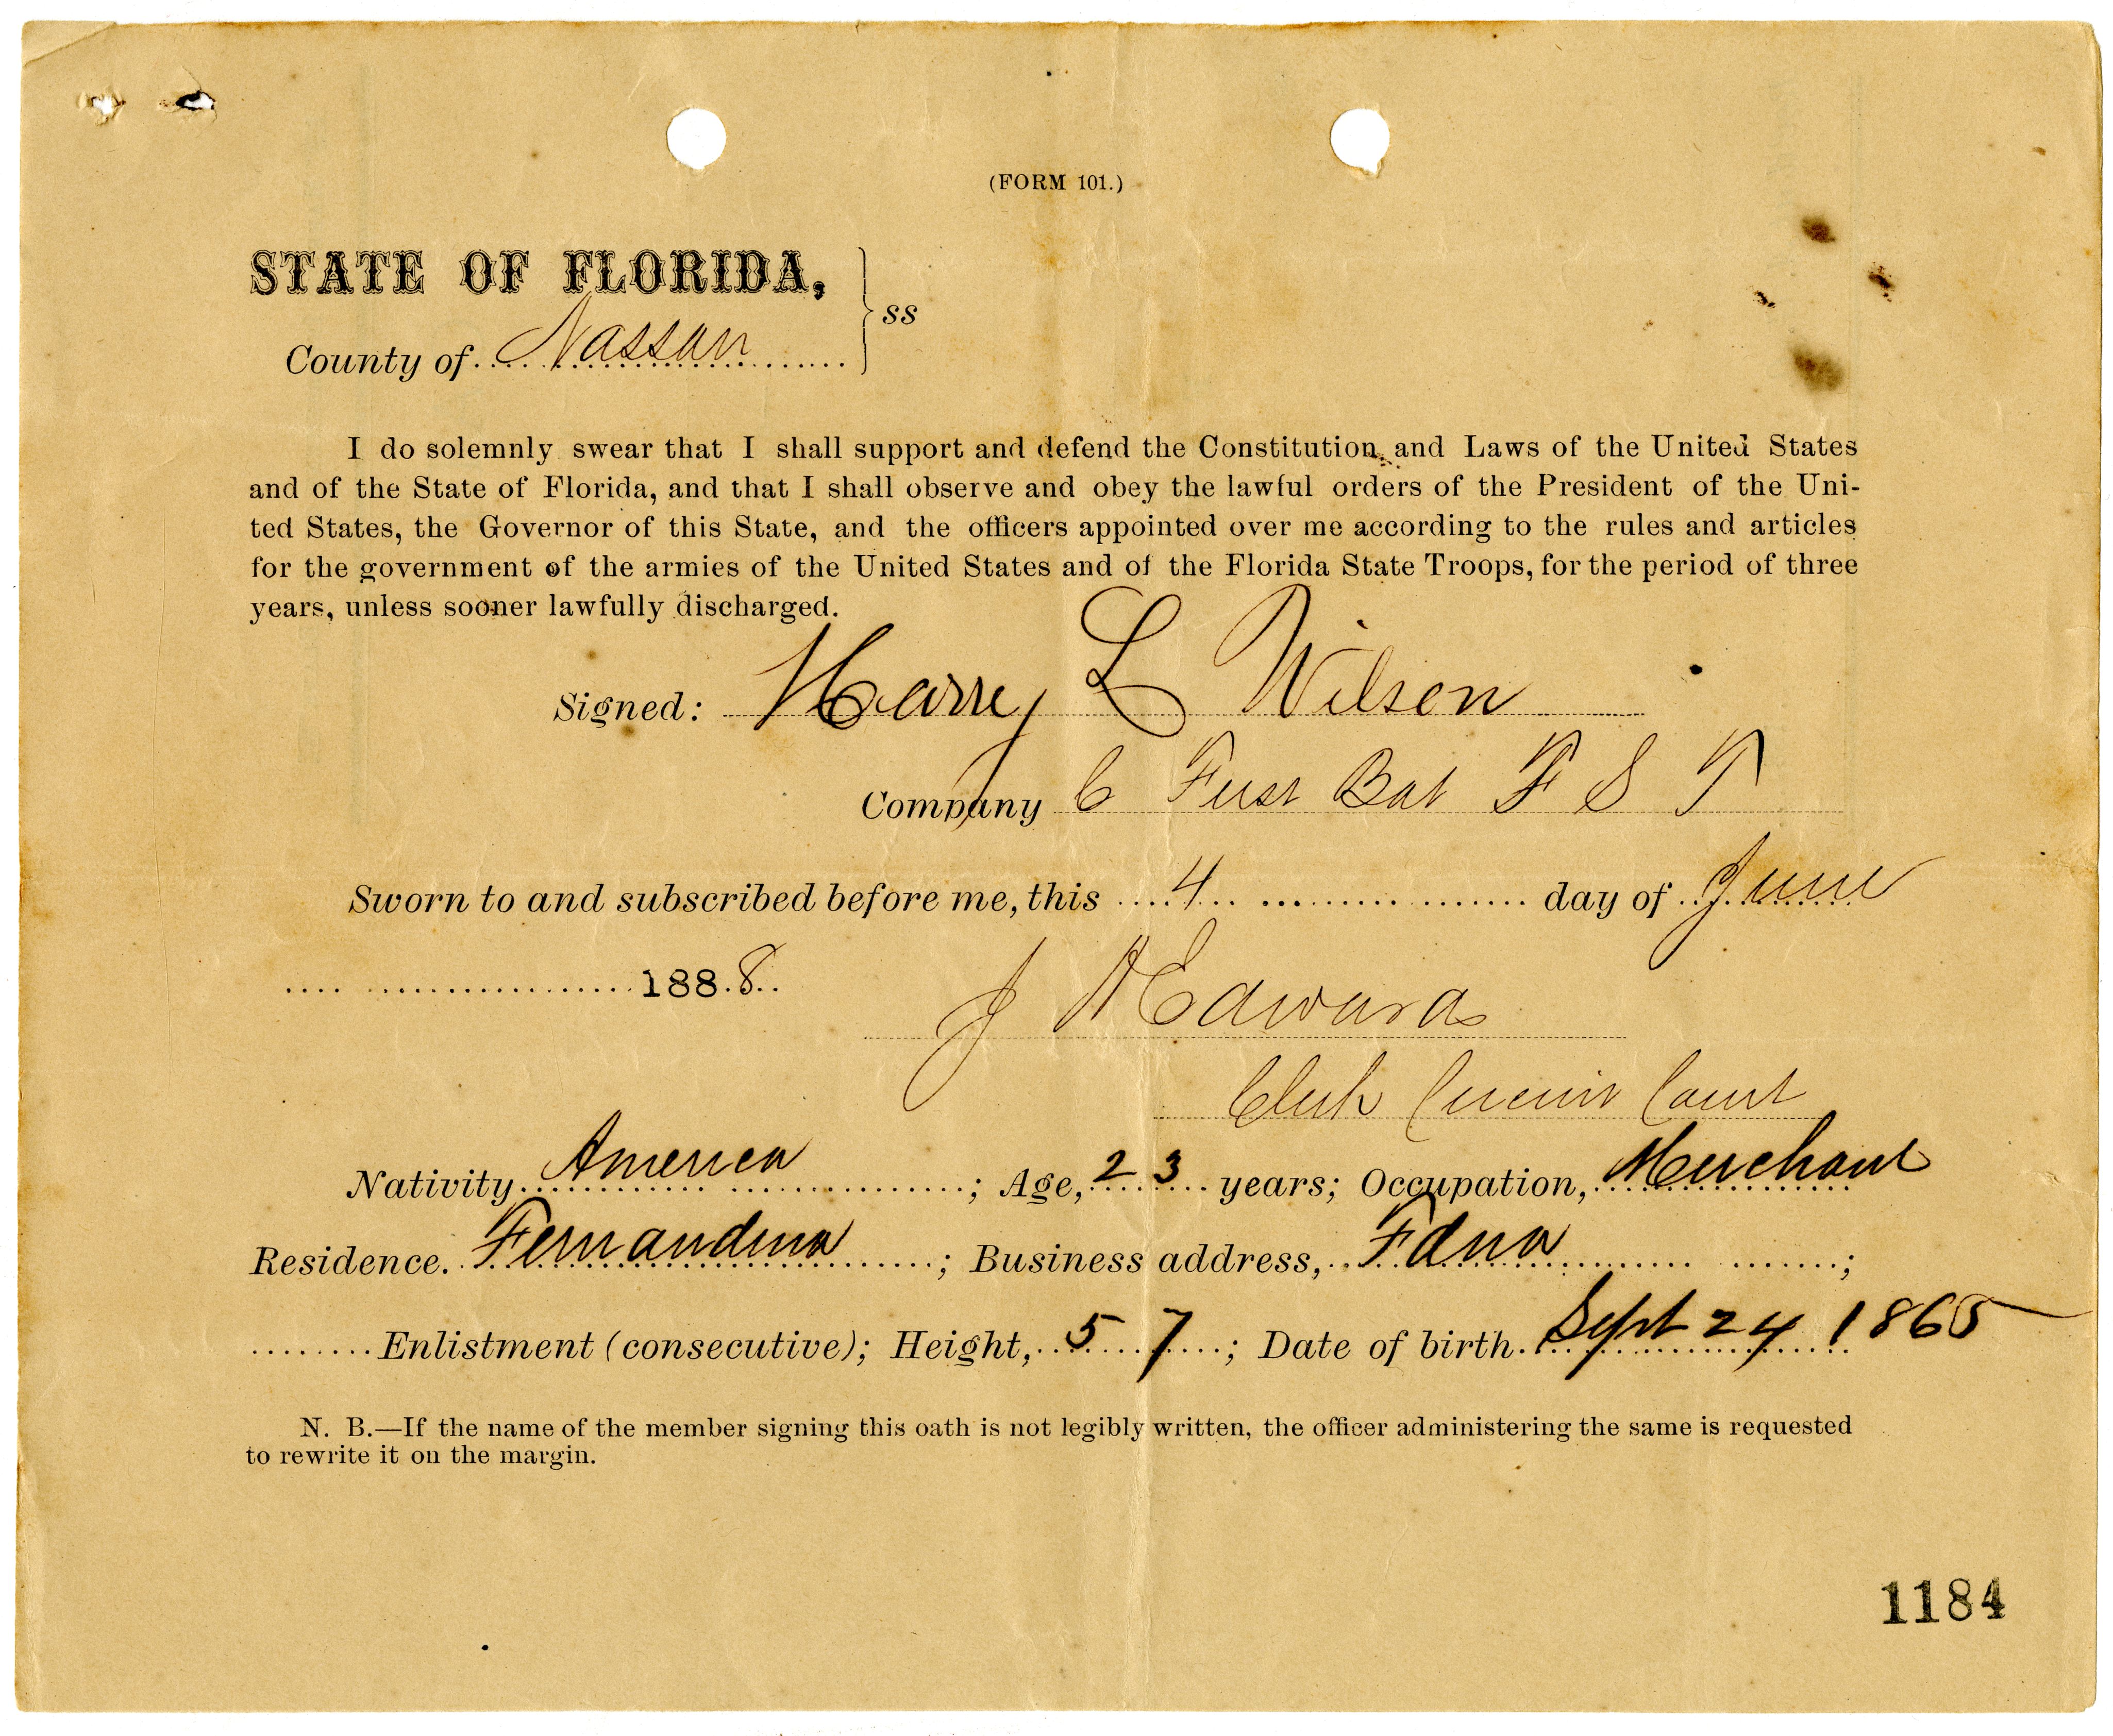 (FORM 101.)
STATE OF FLORIDA,
ss
County of Nassau
I do solemnly swear that I shall support and defend the Constitution and Laws of the United States
and of the State of Florida, and that I shall observe and obey the lawful orders of the President of the Uni-
ted States, the Governor of this State, and the officers appointed over me according to the rules and articles
for the government of the armies of the United States and of the Florida State Troops, for the period of three
years, unless sooner lawfully discharged.
Signed: Harry L Wilson
Company C First Bat F S T
Sworn to and subscribed before me, this 4 day of June
1888
J H Edwards
Clerk Circuit Court
Nativity America ; Age, 23 years; Occupation, Merchant
Residence. Fernandina ; Business address, Fdna ;
Enlistment (consecutive); Height, 5 7 ; Date of birth. Sept 24 1865
N. B.—If the name of the member signing this oath is not legibly written, the officer administering the same is requested
to rewrite it on the margin.
1184